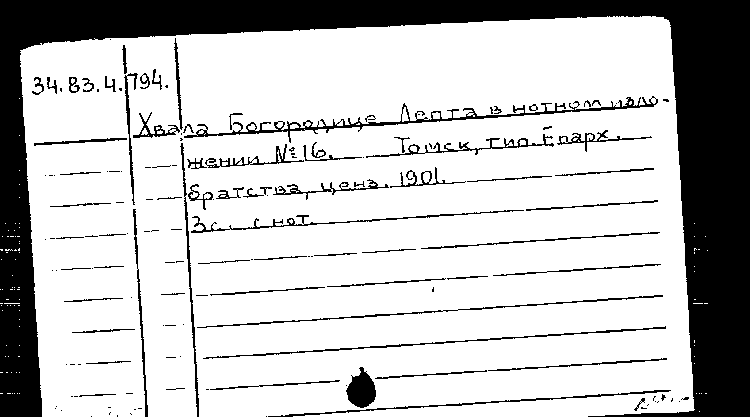 34.83.4.794.
Хвала Богородице Лепта в нотном изло-
жении №16. Томск, тип. Епарх.
братства, ценз. 1901.
3с. с нот.